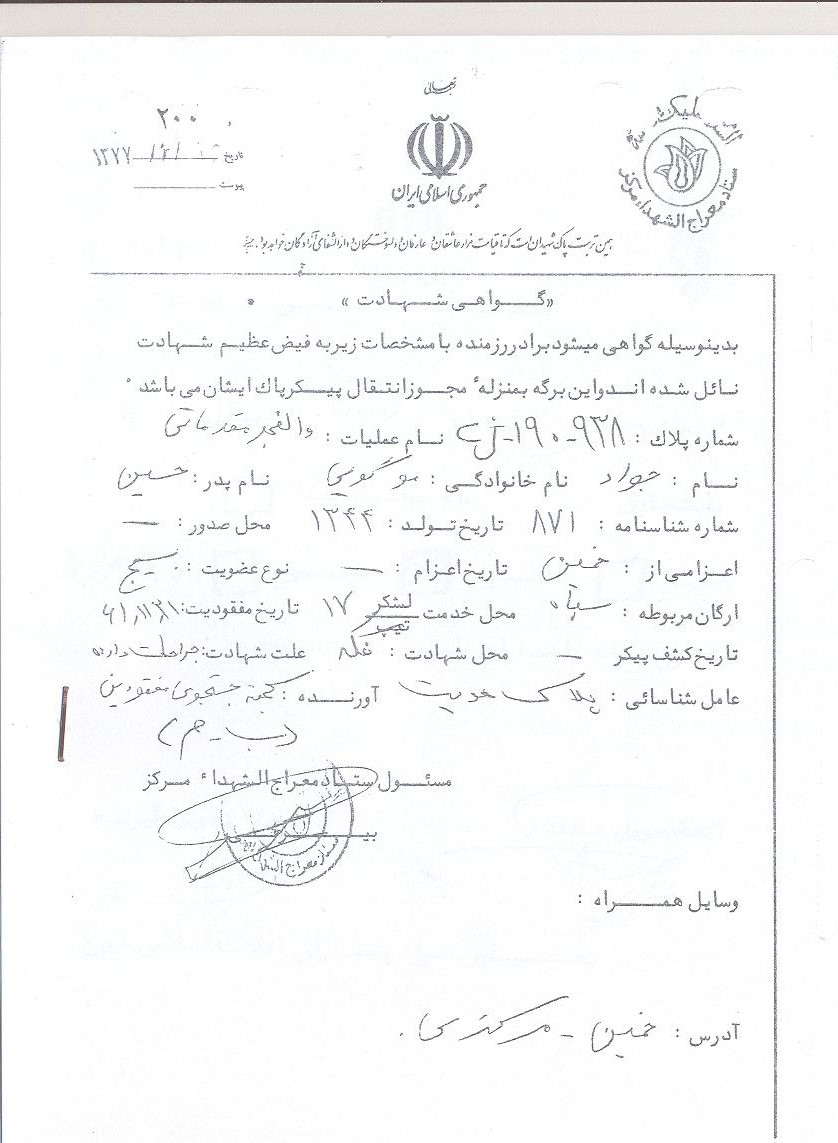 بسمه تعالی
جمهوری اسلامی ایران
۲۰۰
تاریخ ۱۳۷۷
پیوست
السلام علیک
ستاد معراج الشهداء مرکز
همین تربت پاک شهیدان است که تا قیامت مزار عاشقان و عارفان و دلسوختگان و دارالشفای آزادگان خواهد بود.
«گواهی شهادت»
بدینوسیله گواهی میشود برادر رزمنده با مشخصات زیر به فیض عظیم شهادت
نائل شده اند و این برگه بمنزلهٔ مجوز انتقال پیکر پاک ایشان می باشد.
شماره پلاک : ۹۳۸-۱۹۰- نام عملیات : والفجر مقدماتی
نام : جواد نام خانوادگی : موگویی نام پدر : حسین
شماره شناسنامه : ۸۷۱ تاریخ تولد : ۱۳۴۴ محل صدور : —
اعزامی از : خمین تاریخ اعزام : — نوع عضویت : بسیج
ارگان مربوطه : سپاه محل خدمت لشکر تیپ ۱۷ تاریخ مفقودیت : ۶۱/۱۱/۲۱
تاریخ کشف پیکر — محل شهادت : فکه علت شهادت : جراحات وارده
عامل شناسائی : پلاک هویت آورنده : کمیته جستجوی مفقودین
مسئول ستاد معراج الشهداء مرکز
وسایل همراه :
آدرس : خمین - مرکزی.